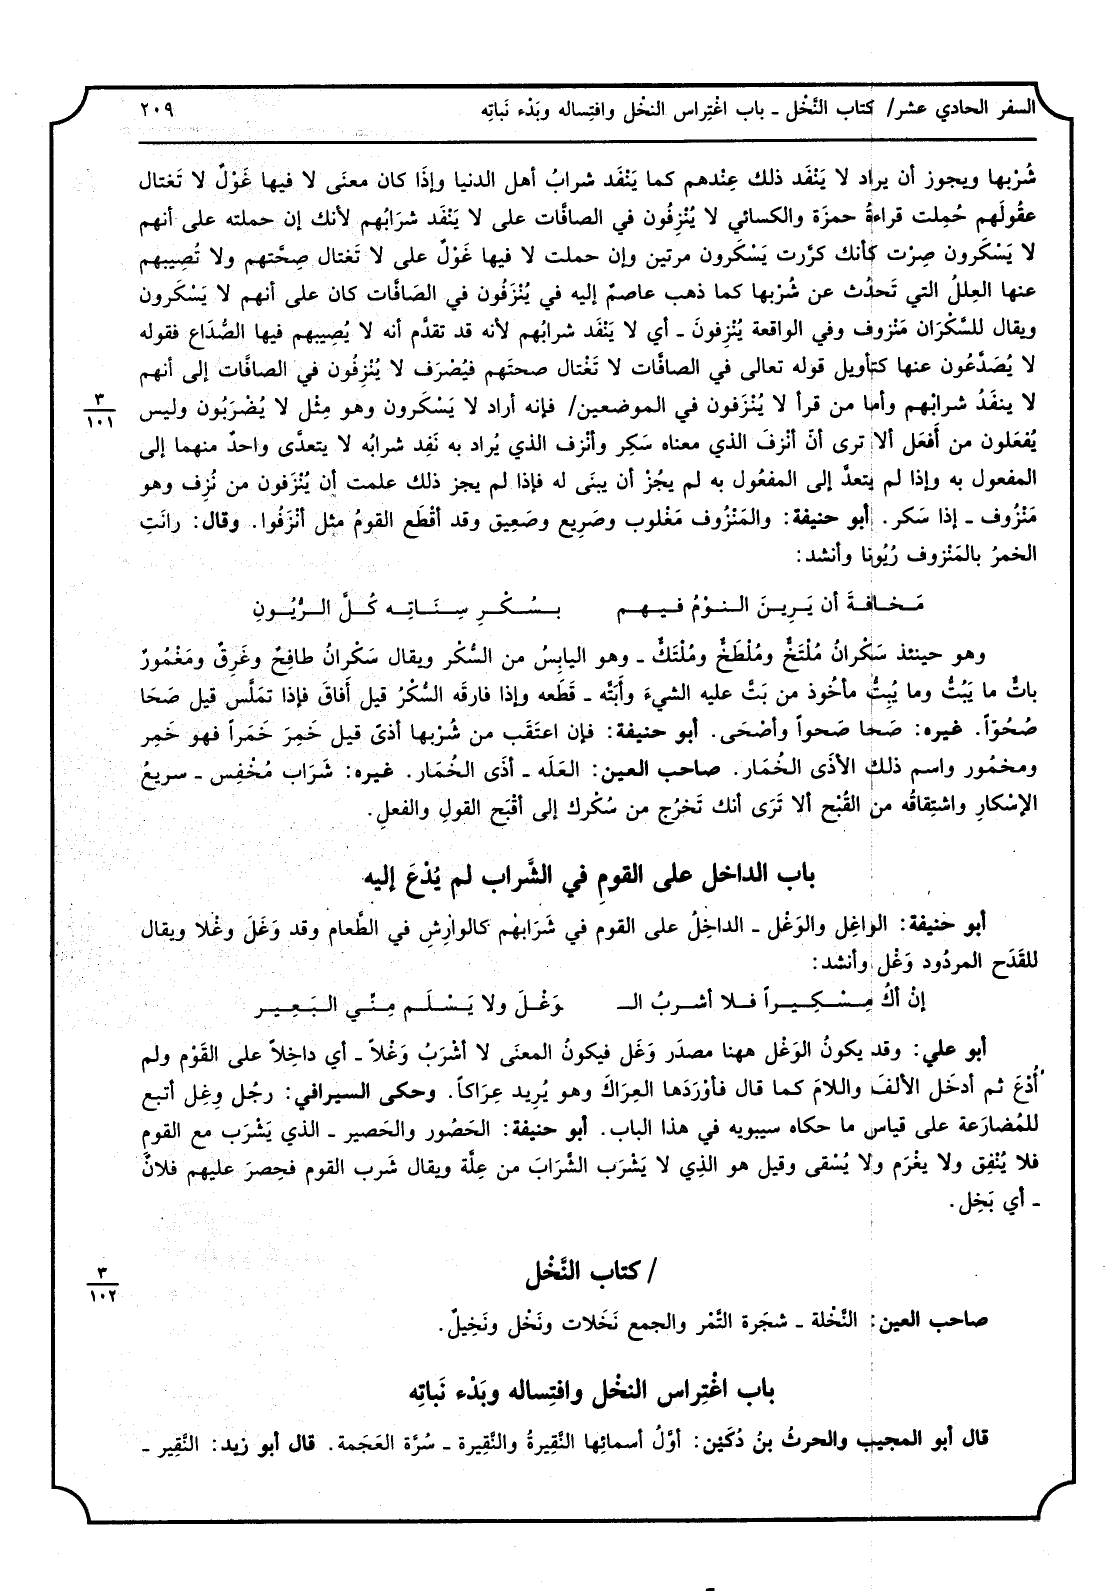 السفر الحادي عشر/ كتاب النَّخْل ـ باب اغْتِراس النخل وافتِساله وبَدْء نَباتِه ٢٠٩
شُرْبها ويجوز أن يراد لا يَنْفَد ذلك عِنْدهم كما يَنْفَد شرابُ أهل الدنيا وإذَا كان معنَى لا فيها غَوْلٌ لا تَغتال
عقُولَهم حُمِلت قراءةُ حمزَة والكسائي لا يُنْزِفُون في الصافَّات على لا يَنْفَد شرَابُهم لأنك إن حملته على أنهم
لا يَسْكَرون صِرْت كأنك كرَّرت يَسْكَرون مرتين وإن حملت لا فيها غَوْلٌ على لا تَغتال صِحَّتهم ولا تُصِيبهم
عنها العِللُ التي تَحدُث عن شُرْبها كما ذهب عاصمٌ إليه في يُنْزَفُون في الصَافَّات كان على أنهم لا يَسْكَرون
ويقال للسَّكْرَان مَنْزوف وفي الواقعة يُنْزِفونَ ـ أي لا يَنْفَد شرابُهم لأنه قد تقدَّم أنه لا يُصِيبهم فيها الصُّدَاع فقوله
لا يُصَدَّعُون عنها كتأويل قوله تعالى في الصافَّات لا تَغْتال صحتَهم فيُصْرَف لا يُنْزِفُون في الصافَّات إلى أنهم
لا ينفَدُ شرابُهم وأما من قرأ لا يُنْزَفون في الموضعين/ فإنه أراد لا يَسْكَرون وهو مِثْل لا يُضْرَبُون وليس
٣
١٠١
يُفْعَلون من أَفعَل ألا ترى أنّ أنْزفَ الذي معناه سَكِر وأنْزف الذي يُراد به نَفِد شرابُه لا يتعدَّى واحدٌ منهما إلى
المفعول به وإذا لم يتعدَّ إلى المفعُول به لم يجُزْ أن يبنَى له فإذا لم يجز ذلك علمت أن يُنْزَفون من نُزِف وهو
مَنْزُوف ـ إذا سَكر. أبو حنيفة: والمَنْزُوف مَغْلوب وصَرِيع وصَعِيق وقد أقْطَع القومُ مثل أنْزَفُوا. وقال: رانَتِ
الخمرُ بالمَنْزوف رُيُونا وأنشد:
مَـخـافـةَ أن يَـرِيـنَ الـنوْمُ فـيـهـم بـسُـكْـرِ سِـنَـاتِـه كُـلَّ الـرُّيُـونِ
وهو حينئذ سَكْرانُ مُلْتَخٌّ ومُلْطَخٌّ ومُلْتَكٌّ ـ وهو اليابِسُ من السُّكْر ويقال سَكْرانُ طافِحٌ وغَرِقٌ ومَغْمُورٌ
باتٌّ ما يَبُتُّ وما يُبِتُّ مأخُوذ من بَتَّ عليه الشيءَ وأَبَتَّه ـ قَطَعه وإذا فارقَه السُّكْرُ قيل أَفاقَ فإذا تمَلَّس قيل صَحَا
صُحُوّاً. غيره: صَحا صَحواً وأصْحَى. أبو حنيفة: فإن اعتَقَب من شُرْبها أذىً قيل خَمِرَ خَمَراً فهو خَمِر
ومخمُور واسم ذلك الأذَى الخُمَار. صاحب العين: العَلَه ـ أذَى الخُمَار. غيره: شَرَاب مُخْفِس ـ سريعُ
الإسْكارِ واشتِقاقُه من القُبْح ألا تَرَى أنك تَخرُج من سُكْرك إلى أقْبَح القولِ والفعلِ.
باب الداخل على القومِ في الشَّراب لم يُدْعَ إليه
أبو حنيفة: الواغِل والوَغْل ـ الداخِلُ على القوم في شَرَابهْم كالوارِشِ في الطَّعام وقد وَغَلَ وغْلا ويقال
للقَدَح المردُود وَغْل وأنشد:
إنْ أكُ مِـسْـكِـيـراً فـلا أشربُ الــ وَغْـلَ ولا يَـسْـلَـم مِـنِّـي الـبَـعِـيـر
أبو علي: وقد يكونُ الوَغْل ههنا مصدَر وَغَل فيكونُ المعنَى لا أشْرَبُ وَغْلاً ـ أي داخِلاً على القَوْم ولم
أُدْعَ ثم أدخَل الألفَ واللامَ كما قال فأوْرَدَها العِرَاكَ وهو يُرِيد عِرَاكاً. وحكى السيرافي: رجُل وِغِل أتبع
للمُضارَعة على قياس ما حكاه سيبويه في هذا الباب. أبو حنيفة: الحَصُور والحَصير ـ الذي يَشْرَب مع القومِ
فلا يُنْفِق ولا يغْرَم ولا يُسْقى وقيل هو الذِي لا يَشْرَب الشَّرابَ من عِلَّة ويقال شَرب القوم فحِصرَ عليهم فلانٌ
ـ أي بَخِل.
/ كتاب النَّخْل
٣
١٠٢
صاحب العين: النَّخْلة ـ شجَرة التَّمْر والجمع نَخَلات ونَخْل ونَخِيلٌ.
باب اغْتِراس النخْل وافتِساله وبَدْء نَباتِه
قال أبو المجيب والحرثُ بنُ دُكَيْن: أوَّلُ أسمائِها النَّقِيرةُ والنَّقِيرة ـ سُرَّة العَجَمة. قال أبو زيد: النَّقِير ـ